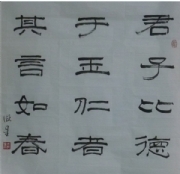 君子比德
于玉仁者
其言如春